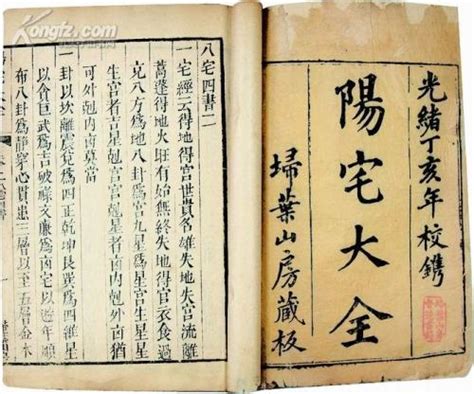 Kongfz.com
光緒丁亥年校鐫
陽宅大全
埽葉山房藏板
八宅四書二
一宅經云得地得宫世貴名雄失地失宫流離
得地 旺有始無終失地得官衣食過
充八方爲地八卦爲宫九星爲星宫生星星
生宫者吉星剋宫宫剋星者凶内剋外凶猶
可外剋内凶莫當
一卦以坎離震兌爲四正乾坤艮巽爲四
以貪巨武爲吉破祿文廉爲凶宅以逐年
布八卦爲靜穿心貫 三層以至五層金木